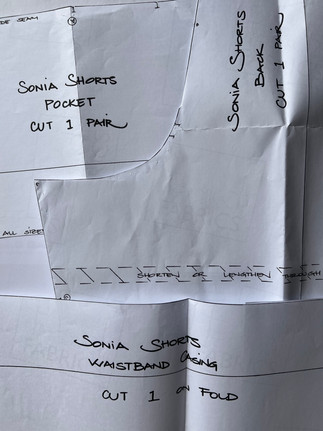 DE SEAM
SONIA SHORTS
POCKET
CUT 1 PAIR
SONIA SHORTS
BACK
CUT 1 PAIR
ALL SIZE
SHORTEN OR LENGTHEN THROUGH
SONIA SHORTS
WAISTBAND CASING
CUT 1 ON FOLD